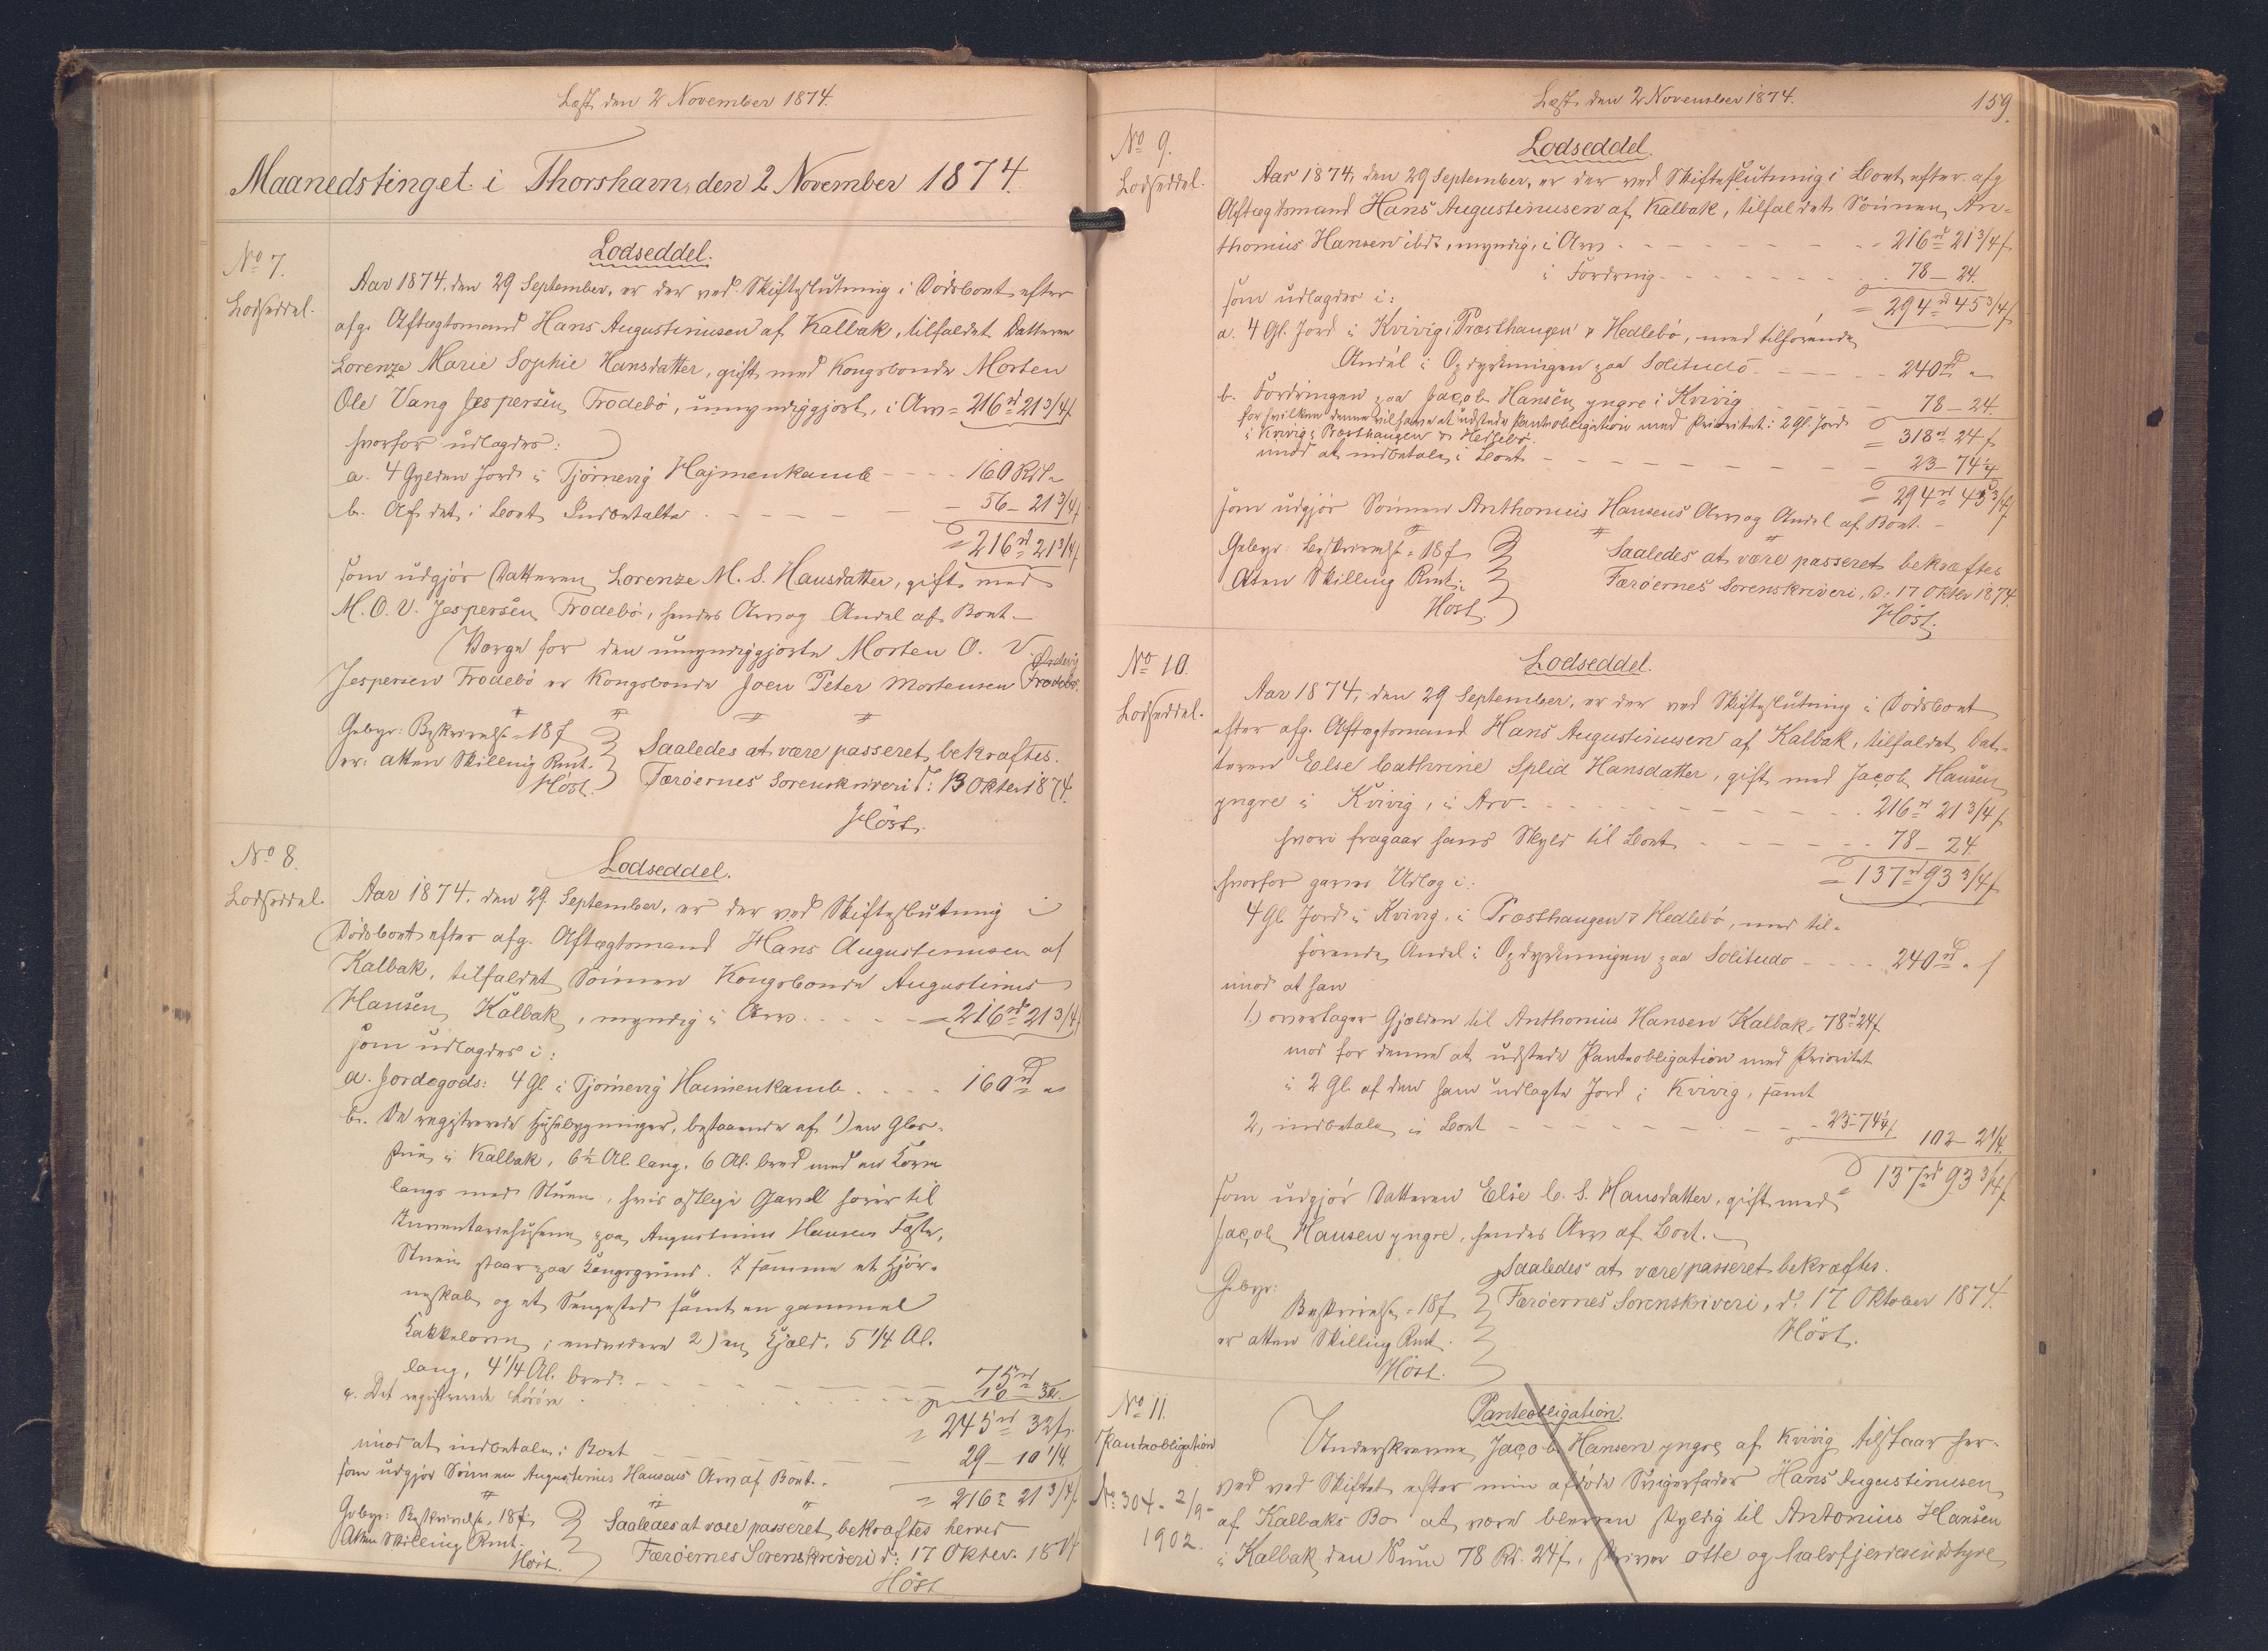 Læst den 2 November 1874.
Maanedstinget i Thorshavn, den 2 November 1874.
No 7.
Lodseddel.
Lodseddel.
Aar 1874, den 29 September, er der ved Skifteslutning i Dödsboet efter
afg. Aftægtsmand Hans Augustinusen af Kalbak, tilfaldet Datteren
Lorenze Marie Sophie Hansdatter, gift med Kongsbonde Morten
Ole Vang Jespersen, Frodebö, umyndiggjort, i Arv = 216rd 21 3/4 f
hvorfor udlagdes:
a. 4 Gylden Jord i Tjörnevig Hajmenkamb - - - 160 Rdl. "
b. Af det i Boet Indbetalte - - - 56 - 21 3/4 f
= 216rd 21 3/4 f
som udgjör Datteren Lorenze M. S. Hansdatter, gift med
M. O. V. Jespersen Frodebö, hendes Arv og Andel af Boet. -
Værge for den umyndiggjorte Morten O. V.
Jespersen Frodebö er Kongsbonde Joen Peter Mortensen Frodebö.
Gebyr: Beskrivelse = 18 f
er: atten Skilling Rmt.
Höst.
Saaledes at være passeret, bekræftes.
Færöernes Sorenskriveri d: 13 Oktbr 1874.
Höst.
No 8.
Lodseddel.
Lodseddel.
Aar 1874, den 29 September, er der ved Skifteslutning i
Dödsboet efter afg. Aftægtsmand Hans Augustinusen af
Kalbak, tilfaldet Sönnen Kongsbonde Augustinus
Hansen, Kalbak, myndig i Arv - - - = 216rd 21 3/4 f
som udlagdes i:
a. Jordegods: 4 Gl i Tjörnevig Haimenkamb - - - 160rd "
b. De registrerede Husbygninger, bestaaende af 1) en Glas-
stue i Kalbak, 6 1/2 Al. lang, 6 Al. bred med en
langs med Stuen, hvis östlige Gavl hörer til
Inventariehusene paa Augustinus Hansens Fæste,
Stuen staar paa Kongsgrund. I samme et Hjör-
neskab og et Sengested samt en gammel
Kakkelovn; endvidere 2) en Hjald, 5 1/4 Al.
lang, 4 1/4 Al. bred - - - 75rd
c. Det registrerede Lösöre - - - 10 - 32.
= 245rd 32 f.
imod at indbetale i Boet - - - 29 - 10 1/4
som udgjör Sönnen Augustinus Hansens Arv af Boet. - = 216rd 21 3/4 f.
Gebyr: Beskrivelse, 18 f
Atten Skilling Rmt.
Höst.
Saaledes at være passeret, bekræftes herved
Færöernes Sorenskriveri d: 17 Oktbr. 1874
Höst
Læst den 2 November 1874.
159.
No 9.
Lodseddel.
Lodseddel.
Aar 1874, den 29 September, er der ved Skifteslutning i Boet efter afg
Aftægtsmand Hans Augustinusen af Kalbak, tilfaldet Sönnen An-
thonius Hansen ibd., myndig, i Arv - - - 216rd 21 3/4 f.
i Fordring - - - 78 - 24.
= 294rd 45 3/4 f
som udlagdes i:
a. 4 Gl. Jord i Kvivig i Præsthaugen & Hedlebö, med tilhörende
Andel i Opdyrkningen paa Solitudo - - - 240rd "
b. Fordringen paa Jacob Hansen yngre i Kvivig - - - 78 - 24.
for hvilken denne vil have at udstede Panteobligation med Prioritet i 2 Gl. Jord
i Kvivig i Præsthaugen & Hedlebö.
= 318rd 24 f
imod at indbetale i Boet - - - 23 - 74 1/4
= 294rd 45 3/4 f
som udgjör Sönnen Anthonius Hansens Arv og Andel af Boet. -
Gebyr: Beskrivelse = 18 f
Atten Skilling Rmt.
Höst.
Saaledes at være passeret bekræftes
Færöernes Sorenskriveri, d: 17 Oktbr 1874.
Höst.
No 10.
Lodseddel.
Lodseddel.
Aar 1874, den 29 September, er der ved Skifteslutning i Dödsboet
efter afg. Aftægtsmand Hans Augustinusen af Kalbak, tilfaldet Dat-
teren Else Cathrine Splid Hansdatter, gift med Jacob Hansen
yngre i Kvivig, i Arv - - - 216rd 21 3/4 f.
hvori fragaar hans Skyld til Boet - - - 78 - 24.
= 137rd 93 3/4 f
hvorfor gaves Udlæg i:
4 Gl. Jord i Kvivig, i Præsthaugen & Hedlebö, med til-
hörende Andel i Opdyrkningen paa Solitudo - - - 240rd " f
imod at han
1.) overtager Gjælden til Anthonius Hansen Kalbak = 78rd 24 f
mod for denne at udstede Panteobligation med Prioritet
i 2 Gl. af den ham udlagte Jord i Kvivig, samt
2, indbetale i Boet - - - 23 - 74 1/4 f 102 - 2 1/4.
= 137rd 93 3/4 f
som udgjör Datteren Else C. S. Hansdatter, gift med
Jacob Hansen yngre, hendes Arv af Boet. -
Gebyr:
Beskrivelse = 18 f
er atten Skilling Rmt.
Höst.
Saaledes at være passeret bekræftes.
Færöernes Sorenskriveri, d. 17 Oktober 1874.
Höst.
No 11.
Panteobligation
No 304 - 2/9 -
1902.
Panteobligation.
Underskrevne Jacob Hansen yngre af Kvivig tilstaar her-
ved ved Skiftet efter min afdöde Svigerfader Hans Augustinusen
af Kalbaks Bo at være bleven skyldig til Antonius Hansen
i Kalbak den Sum 78 Rd. 24 f, skriver otte og halvfjerdsindstyve